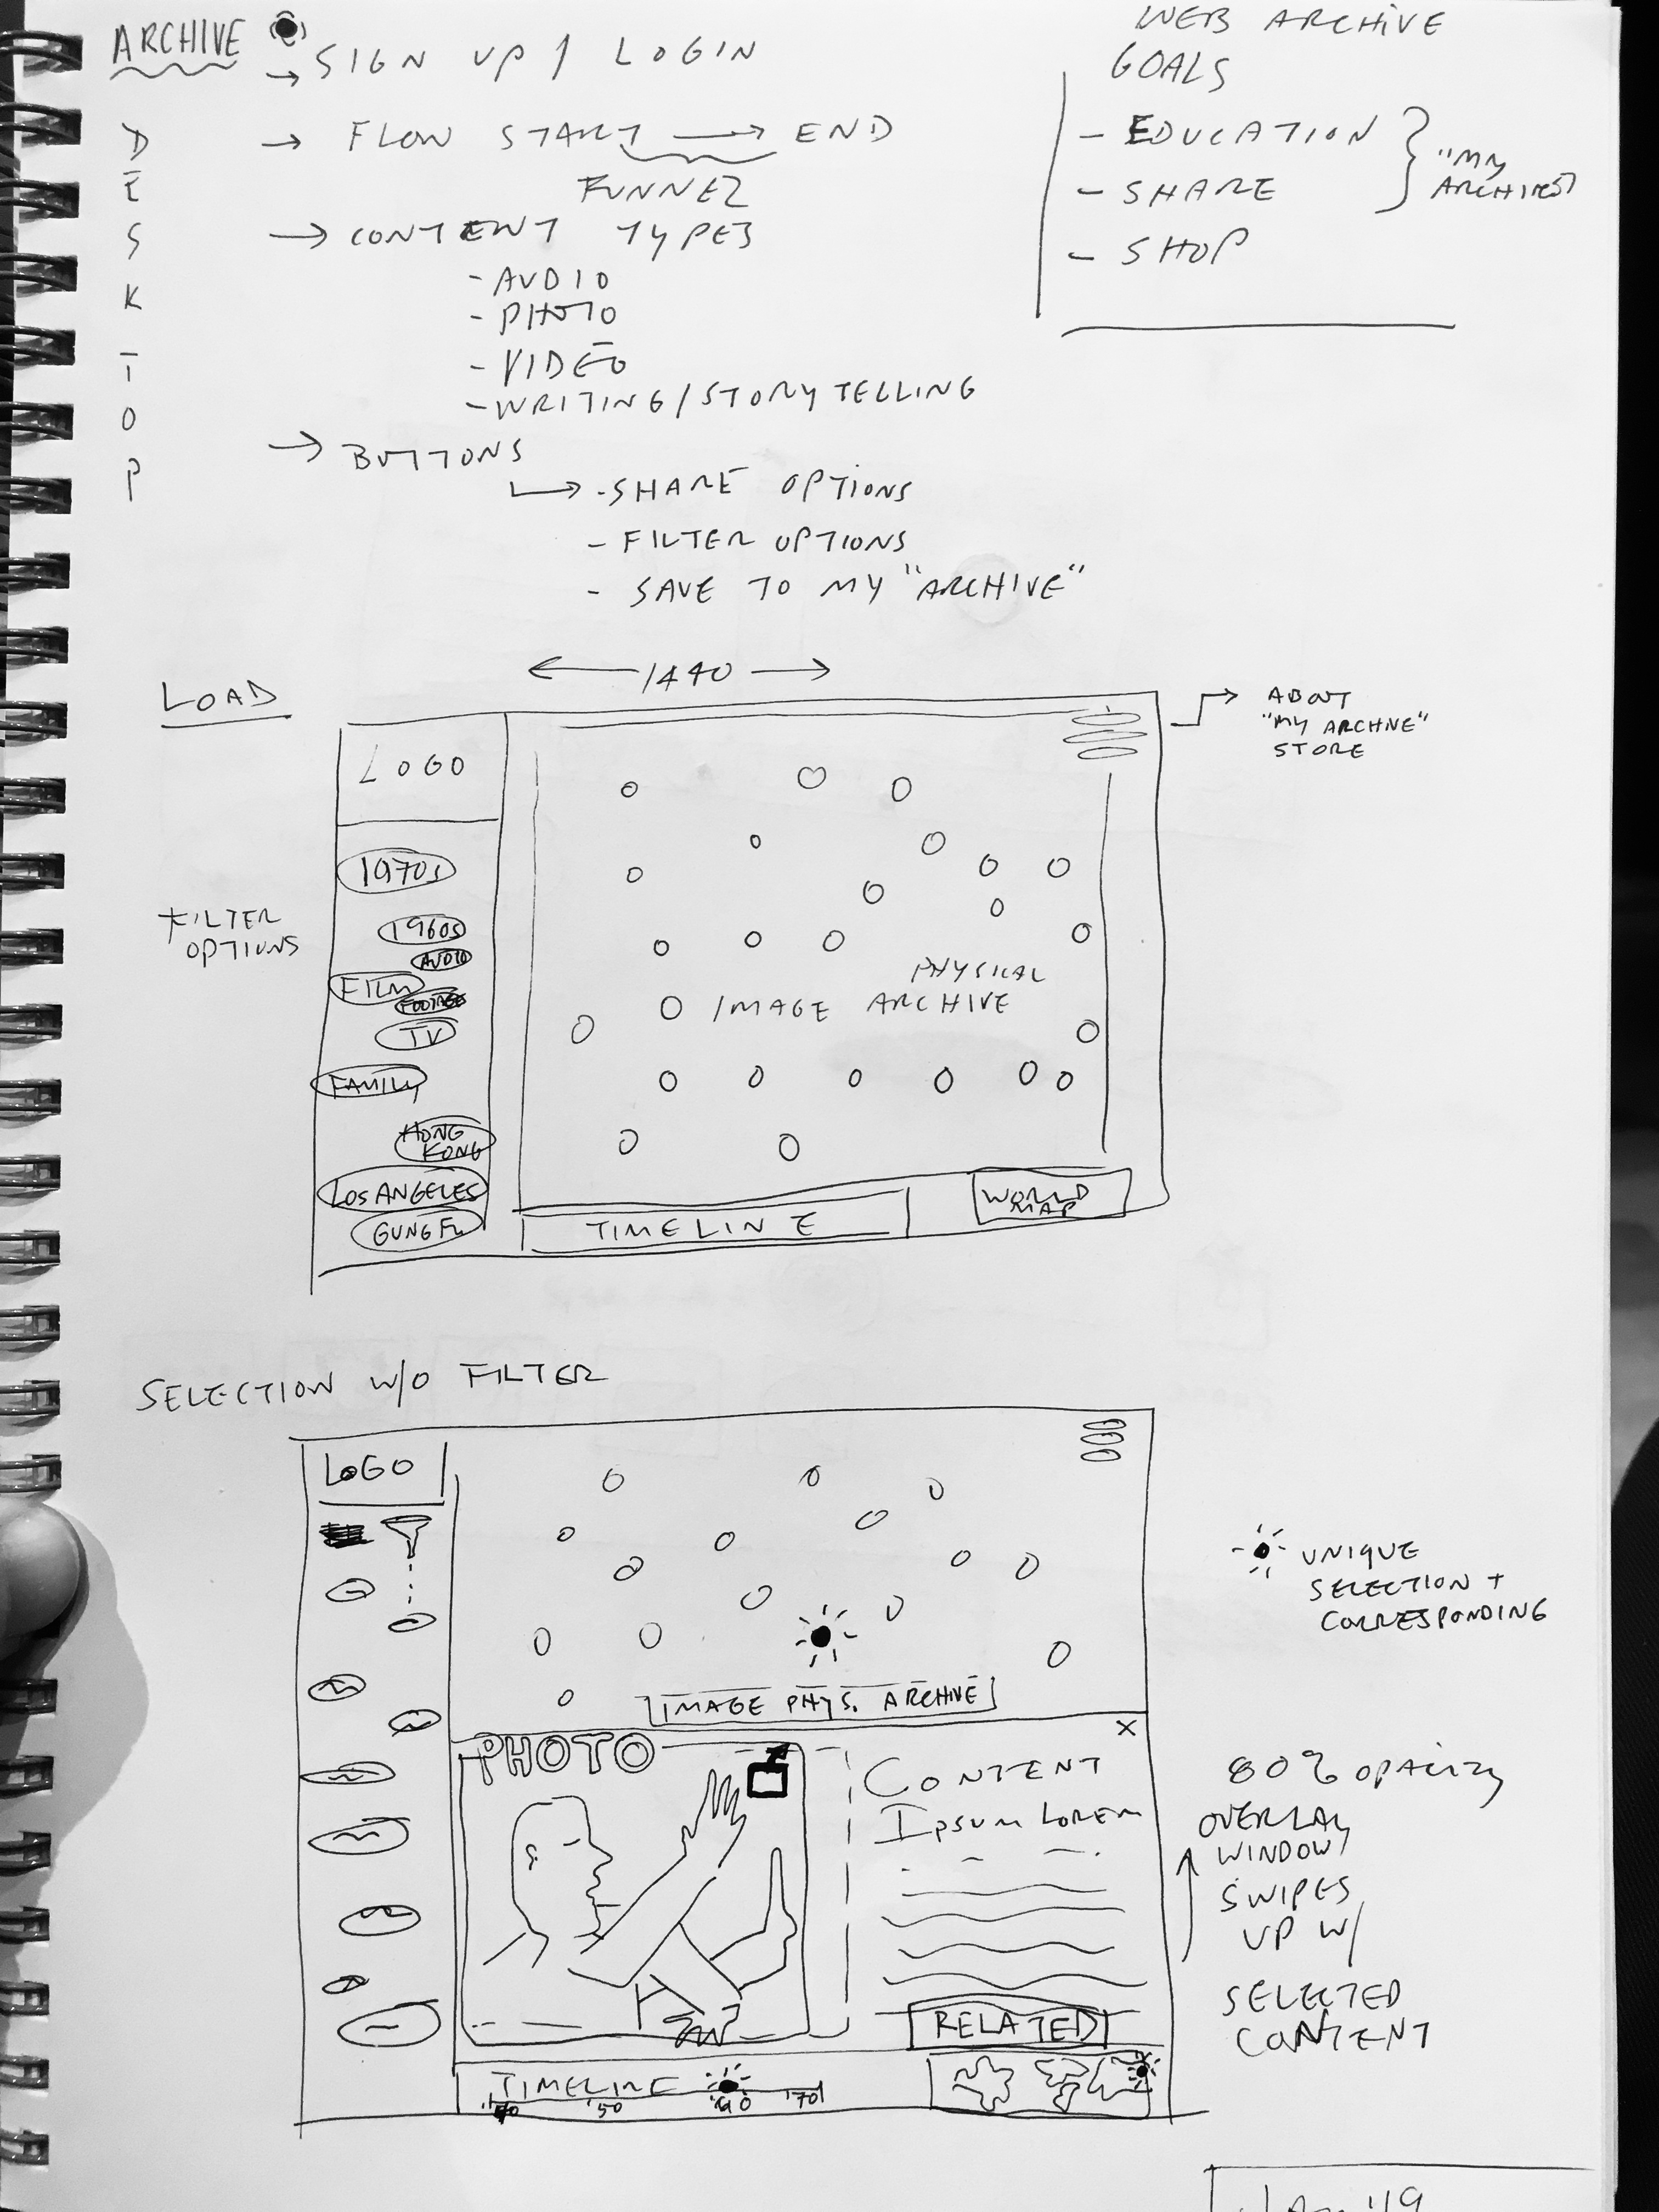 ARCHIVE
→ SIGN UP / LOGIN
DESKTOP
→ FLOW START → END
FUNNEL
→ CONTENT TYPES
- AUDIO
- PHOTO
- VIDEO
- WRITING/STORYTELLING
→ BUTTONS
→ - SHARE OPTIONS
- FILTER OPTIONS
- SAVE TO MY "ARCHIVE"
WEB ARCHIVE
GOALS
- EDUCATION
- SHARE
- SHOP
"MY
LOAD
← 1440 →
ABOUT
"MY ARCHIVE"
STORE
LOGO
FILTER
OPTIONS
1970s
1960s
AUDIO
FILM
FOOTAGE
TV
FAMILY
HONG
KONG
LOS ANGELES
GUNG FU
PHYSICAL
IMAGE ARCHIVE
TIMELINE
WORLD
MAP
SELECTION W/O FILTER
LOGO
UNIQUE
SELECTION +
CORRESPONDING
IMAGE PHYS. ARCHIVE
X
PHOTO
CONTENT
IPSUM LOREM
RELATED
80% OPACITY
OVERLAY
WINDOW
SWIPES
UP W/
SELECTED
CONTENT
TIMELINE
'50 '60 '70